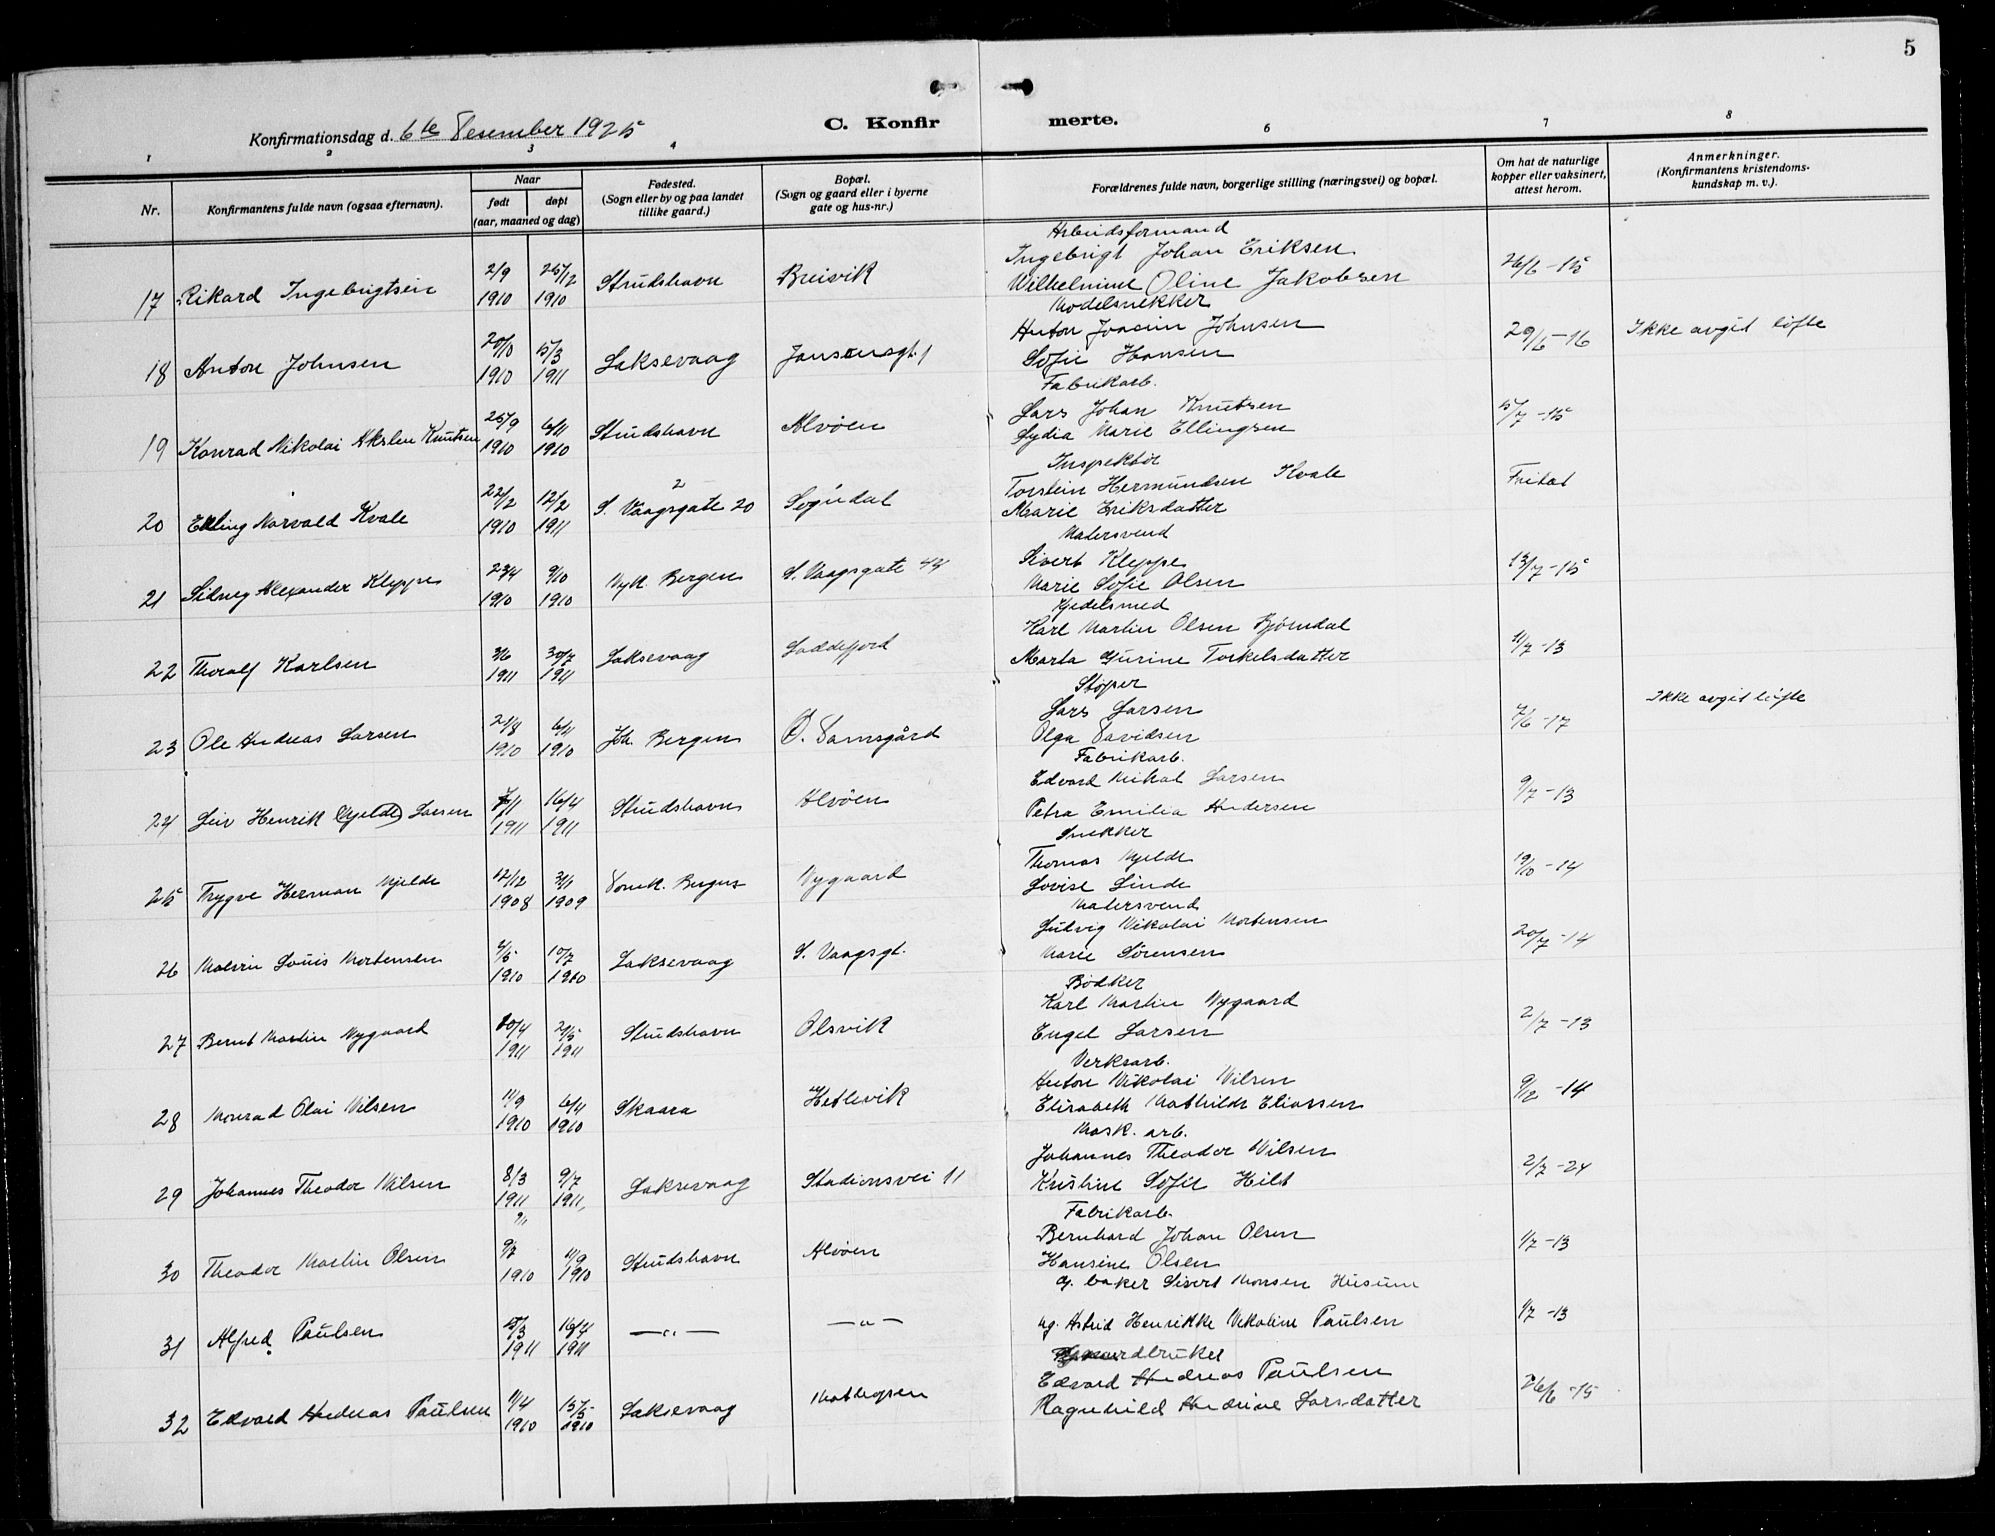 5
Konfirmationsdag d. 6te Desember 1925
C. Konfirmerte.
1 2 3 4 6 7 8
Nr.
Konfirmantens fulde navn (ogsaa efternavn).
Naar
født
døpt
(aar, maaned og dag)
Fødested.
(Sogn eller by og paa landet
tillike gaard.)
Bopæl.
(Sogn og gaard eller i byerne
gate og hus-nr.)
Forældrenes fulde navn, borgerlige stilling (næringsvei) og bopæl.
Om hat de naturlige
kopper eller vaksinert,
attest herom.
Anmerkninger.
(Konfirmantens kristendoms-
kundskap m. v.).
Arbeidsformand
Ingebrigt Johan Eriksen
17 Rikard Ingebrigtsen 2/9 1910 25/12 1910 Strudshavn Breivik Wilhelmine Oline Jakobsen 26/6-15
Modelsnekker
Anton Joacim Johnsen
18 Anton Johnsen 1910 5/3 1911 Laksevaag Jansensgt. 1 Sofie Hansen 29/5-16 Ikke avgit løfte
Fabrikarb.
Lars Johan Knutsen
19 Konrad Nikolai Akslen Knutsen 25/9 1910 6/11 1910 Strudshavn Alvøen Lydia Marie Ellingsen 5/7-15
Inspektør
Torstein Hermundsen Kvale
20 Elling Norvald Kvale 22/2 1910 12/2 1911 S. Vaagsgate 20 2 Sogndal Marie Eriksdatter Fritat
Malersvend
Sivert Kleppe
21 Sidney Alexander Kleppe 23/4 1910 9/10 1910 Nyk. Bergen S. Vaagsgate 44 Marie Sofie Olsen 13/7-15
Kjedelsmed
Karl Martin Olsen Bjørndal
22 Thoralf Karlsen 3/6 1911 30/7 1911 Laksevaag Loddefjord Marta Gurine Torkelsdatter 11/7-13
Støper
Lars Larsen
23 Ole Andreas Larsen 21/8 1910 6/11 1910 Joh. Bergen Ø. Damsgård Olga Davidsen 7/6-17 Ikke avgit løfte
Fabrikarb.
Edvard Mikal Larsen
24 Leiv Henrik (Gjelde) Larsen 1911 16/4 1911 Strudshavn Alvøen Petra Emilia Andersen 9/7-13
Snekker
Thomas Mjelde
25 Trygve Herman Mjelde 12/12 1908 31/1 1909 Domk. Bergen Nygaard Lovise Linde 19/10-14
Malersvend
Ludvig Nikolai Mortensen
26 Malvin Louis Mortensen 4/5 1910 10/7 1910 Laksevaag S. Vaagsgt. Marie Sørensen 20/7-14
Bødker
Karl Martin Nygaard
27 Bernt Martin Nygaard 20/4 1911 1911 Strudshavn Olsvik Engel Larsen 2/7-13
Verksarb.
Anton Nikolai Nilsen
28 Monrad Olai Nilsen 11/9 1910 6/11 1910 Skaara Hetlevik Elisabeth Mathilde Eliassen 9/12-14
Mask. arb.
Johannes Theodor Nilsen
29 Johannes Theodor Nilsen 8/3 1911 9/7 1911 Laksevaag Stadionsvei 11 Kristine Sofie Hilt 2/7-24
Fabrikarb.
Bernhard Johan Olsen
30 Theodor Martin Olsen 9/7 1910 11/9 1910 Strudshavn Alvøen Hansine Olsen 1/7-13
g. baker Sivert Monsen Husum
31 Alfred Paulsen 5/3 1911 16/4 1911 —„— —„— ug. Astrid Henrikke Nikoline Paulsen 1/7-13
Gaardbruker
Edvard Andreas Paulsen
32 Edvard Andreas Paulsen 11/4 1910 15/5 1910 Laksevaag Mathopen Ragnhild Andrine Larsdatter 26/6-15